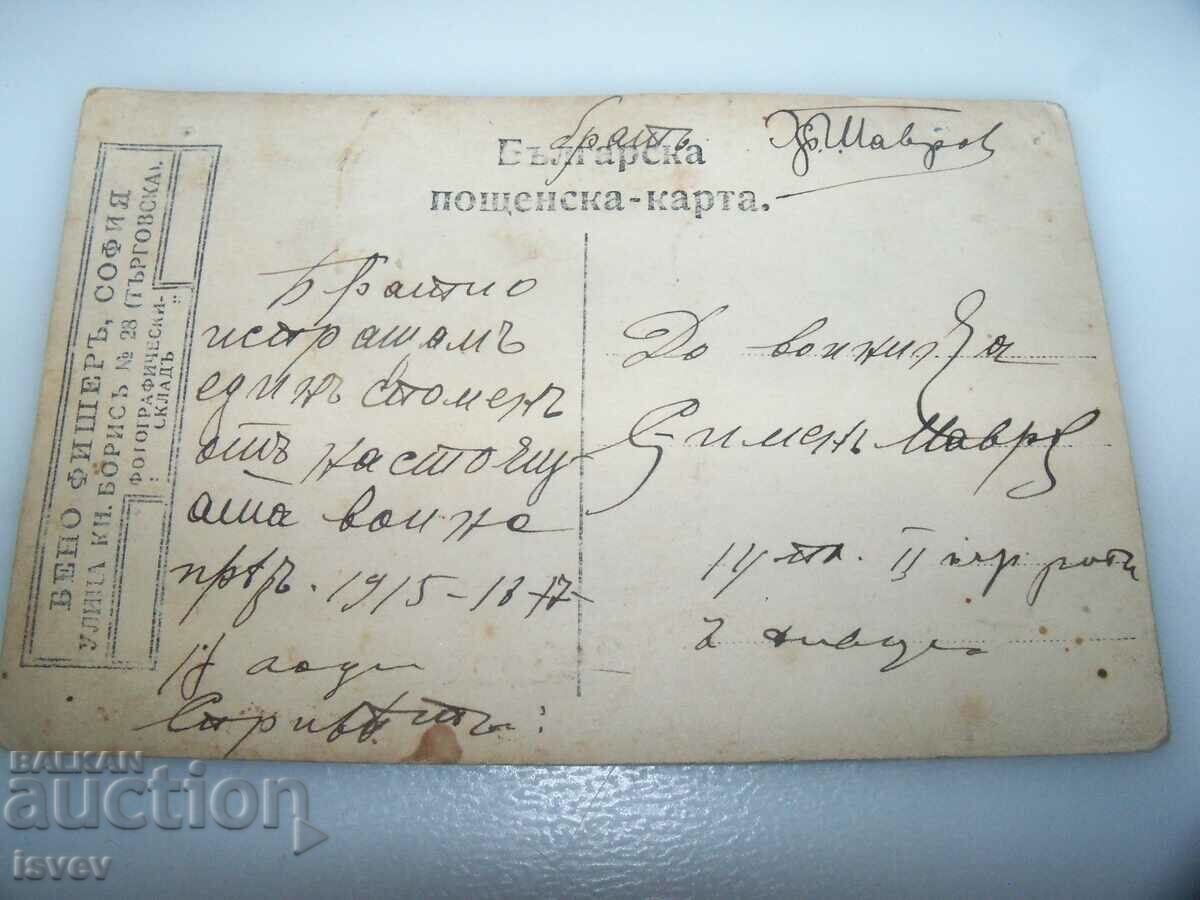 БЕНО ФИШЕРЪ, СОФИЯ
УЛИЦА КН. БОРИСЪ № 28 (ТЪРГОВСКА).
ФОТОГРАФИЧЕСКИ-
: СКЛАДЪ :
братъ Хр. Мавров
Българска
пощенска-карта.
Братио
испращамъ
единъ споменъ
отъ настоящ
аша война
прѣзъ 1915-16-17-
18 годи
Сприветъ:
До войника
Сименъ Мавров
14 II рота
2
BALKAN
auction
isvev